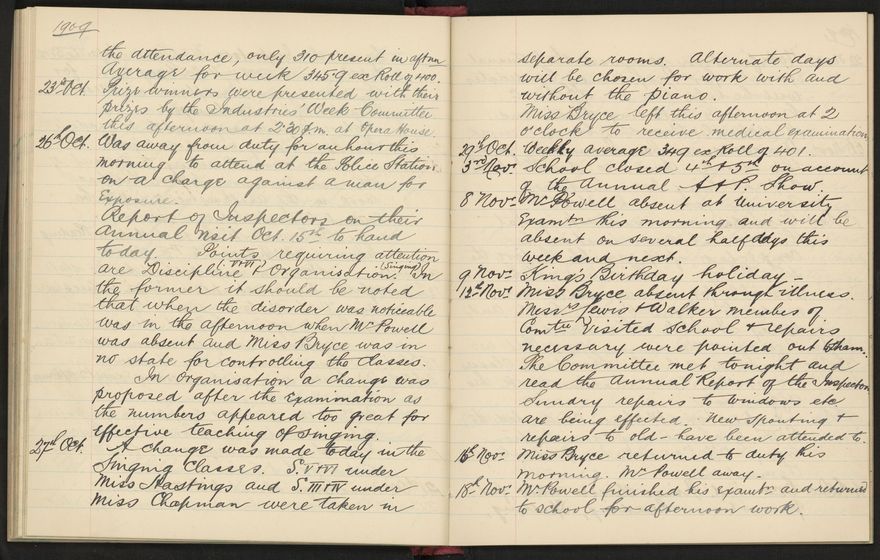 1909
the attendance, only 310 present in aftnn
Average for week 345.9 ex Roll of 400.
23rd Oct. Prize winners were presented with their
prizes by the Industries' Week Committee
this afternoon at 2.30 p.m. at Opera House.
26th Oct. Was away from duty for an hour this
morning to attend at the Police Station
on a charge against a man for
Exposure.
Report of Inspectors on their
Annual visit Oct. 15th to hand
today. Points requiring attention
are Discipline V+VI & Organisation. (Singing) In
the former it should be noted
that when the disorder was noticeable
was in the afternoon when Mr Powell
was absent and Miss Bryce was in
no state for controlling the classes.
In Organisation a change was
proposed after the Examination as
the numbers appeared too great for
effective teaching of singing.
27th Oct. A change was made today in the
Singing Classes. S. V+VI under
Miss Hastings and S. III+IV under
Miss Chapman were taken in
separate rooms. Alternate days
will be chosen for work with and
without the piano.
Miss Bryce left this afternoon at 2
o'clock to receive medical examination
29th Oct. Weekly average 349 ex Roll of 401.
3rd Nov. School closed 4th & 5th on account
of the Annual A & P. Show.
8 Nov. Mr Powell absent at University
Examtn this morning and will be
absent on several half days this
week and next.
9 Nov. King's Birthday holiday -
12th Nov. Miss Bryce absent through illness.
Messrs Lewis & Walker members of
Comtee visited School & repairs
necessary were pointed out to them.
The Committee met tonight and
read the Annual Report of the Inspectors
Sundry repairs to windows etc
are being effected. New spouting &
repairs to old - have been attended to.
16th Nov. Miss Bryce returned to duty this
morning. Mr Powell away.
18th Nov. Mr Powell finished his Examtn and returned
to school for afternoon work.